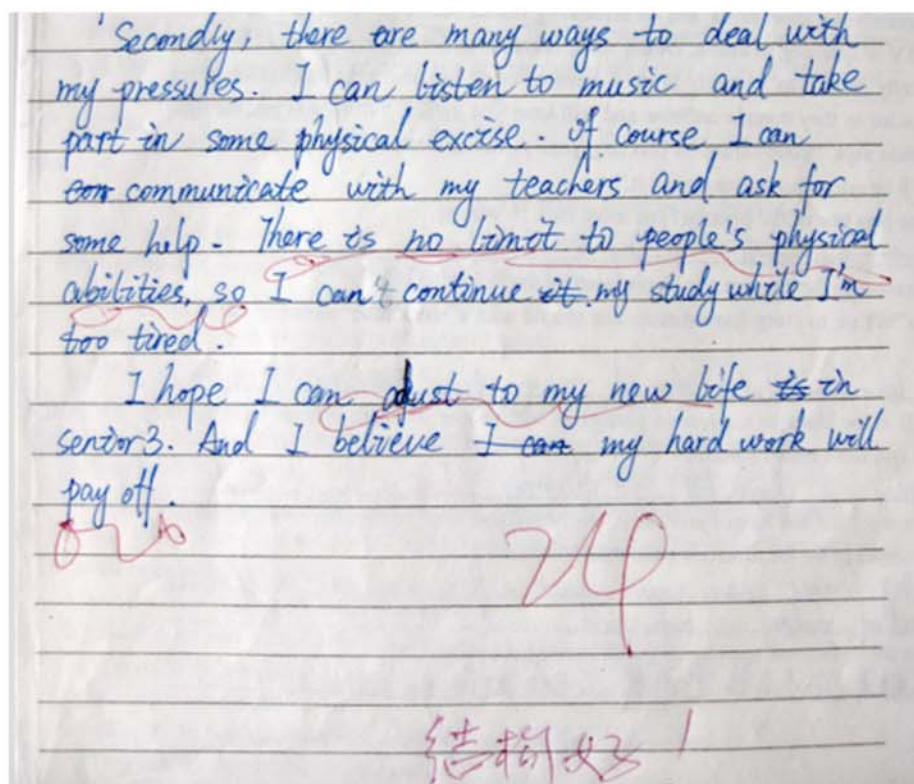 Secondly, there are many ways to deal with
my pressures. I can listen to music and take
part in some physical excise. Of course I can
con communicate with my teachers and ask for
some help. There is no limit to people's physical
abilities, so I can't continue it my study while I'm
too tired.
I hope I can adjust to my new life is in
senior3. And I believe I can my hard work will
pay off.
24
结构好!